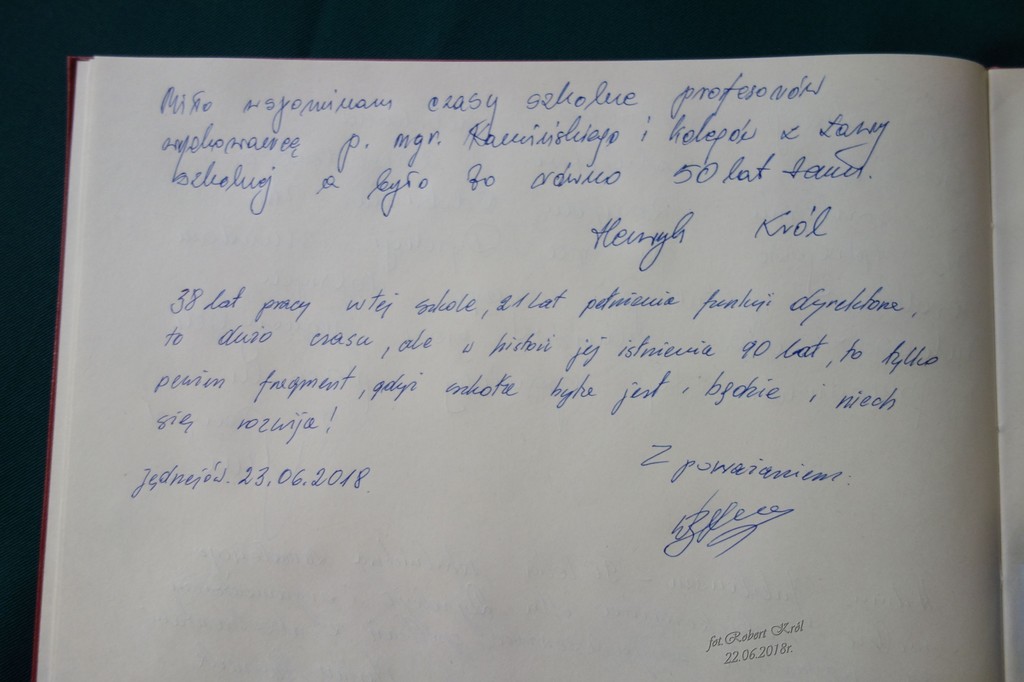 Miło wspominam czasy szkolne profesorów
wychowawcę p. mgr. Kamińskiego i kolegów z ławy
szkolnej a było to równo 50 lat temu.
Henryk Król
38 lat pracy w tej szkole, 21 lat pełnienia funkcji dyrektora,
to dużo czasu, ale w histori jej istnienia 90 lat, to tylko
pewien fragment, gdyż szkoła była jest i będzie i niech
się rozwija!
Z poważaniem:
Jędrzejów. 23.06.2018
fot. Robert Król
22.06.2018r.